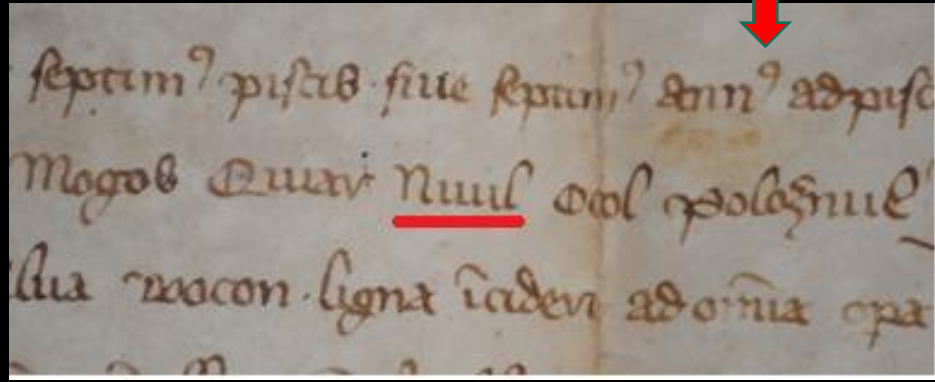 septimꝰ piscis siue septimꝰ annꝰ ad pisc
Mogos Quar Niuil Ocol
lua woocon ligna īcidere ad om̄ia opa